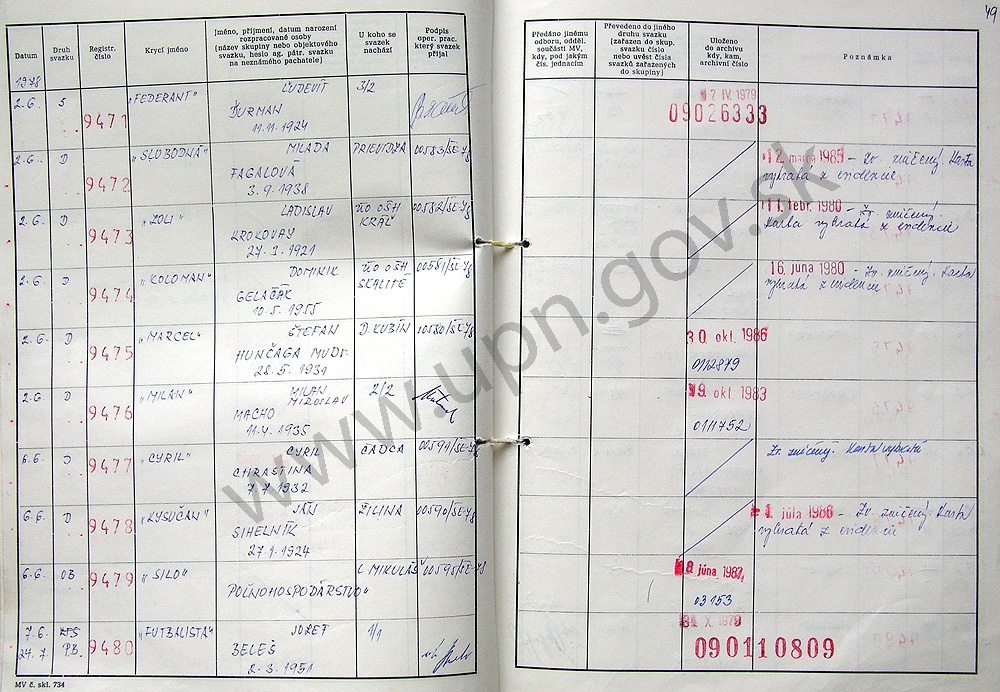 49
Datum
Druh svazku
Registr. číslo
Krycí jméno
Jméno, příjmení, datum narození
rozpracované osoby
(název skupiny nebo objektového
svazku, heslo ag. pátr. svazku
na neznámého pachatele)
U koho se
svazek
nachází
Podpis
oper. prac.
který svazek
přijal
Předáno jinému
odboru, odděl.
součásti MV,
kdy, pod jakým
čís. jednacím
Převedeno do jiného
druhu svazku
(zařazen do skup.
svazku číslo
nebo uvést čísla
svazků zařazených
do skupiny)
Uloženo
do archivu
kdy, kam,
archivní číslo
Poznámka
1978
2.6. S 9471 „FEDERANT“ ĽUDEVÍT 3/2
ĎURMAN
11.11.1924
17 IV. 1979
09026333
2.6. D 9472 „SLOBODNÁ“ MILADA PRIEVIDZA 00583/ŠE-78
FAGALOVÁ
3.9.1938
12. marca 1985 – Zv. zničený. Karta
vybratá z evidencie
2.6. D 9473 „ZOLI“ LADISLAV ÚO OŠH KRÁĽ 00582/ŠE-78
KROKOVAY
27.3.1921
11. febr. 1980 – Zv. zničený.
Karta vybratá z evidencie
2.6. D 9474 „KOLOMAN“ DOMINIK ÚO OŠH SKALITÉ 00581/ŠE-78
GELAČÁK
10.5.1955
16. júna 1980 – Zv. zničený. Karta
vybratá z evidencie
2.6. D 9475 „MARCEL“ ŠTEFAN D. KUBÍN 00580/ŠE-78
HUNČAGA MUDr.
28.5.1931
30. okt. 1986
0112879
2.6 D 9476 „MILAN“ MILAN 2/2
MIROSLAV
MACHO
11.4.1935
19. okt 1983
0111752
6.6. D 9477 „CYRIL“ CYRIL ČADCA 00591/ŠE-78
CHRASTINA
7.7.1932
Zv. zničený. Karta vybratá
6.6. D 9478 „KYSUČAN“ JÁN ŽILINA 00590/ŠE-78
SIHELNÍK
27.1.1924
1. júla 1986 – Zv. zničený. Karta
vybratá z evidencie
6.6. OB 9479 „SILO“ L. MIKULÁŠ 00595/ŠE-78
POĽNOHOSPODÁRSTVO“
18. júna 1987
03153
7.6. 9480 „FUTBALISTA“ JOZEF 1/1
24.7. P.B. BELEŠ
2.3.1951
31 X. 1979
090110809
MV č. skl. 734
www.upn.gov.sk